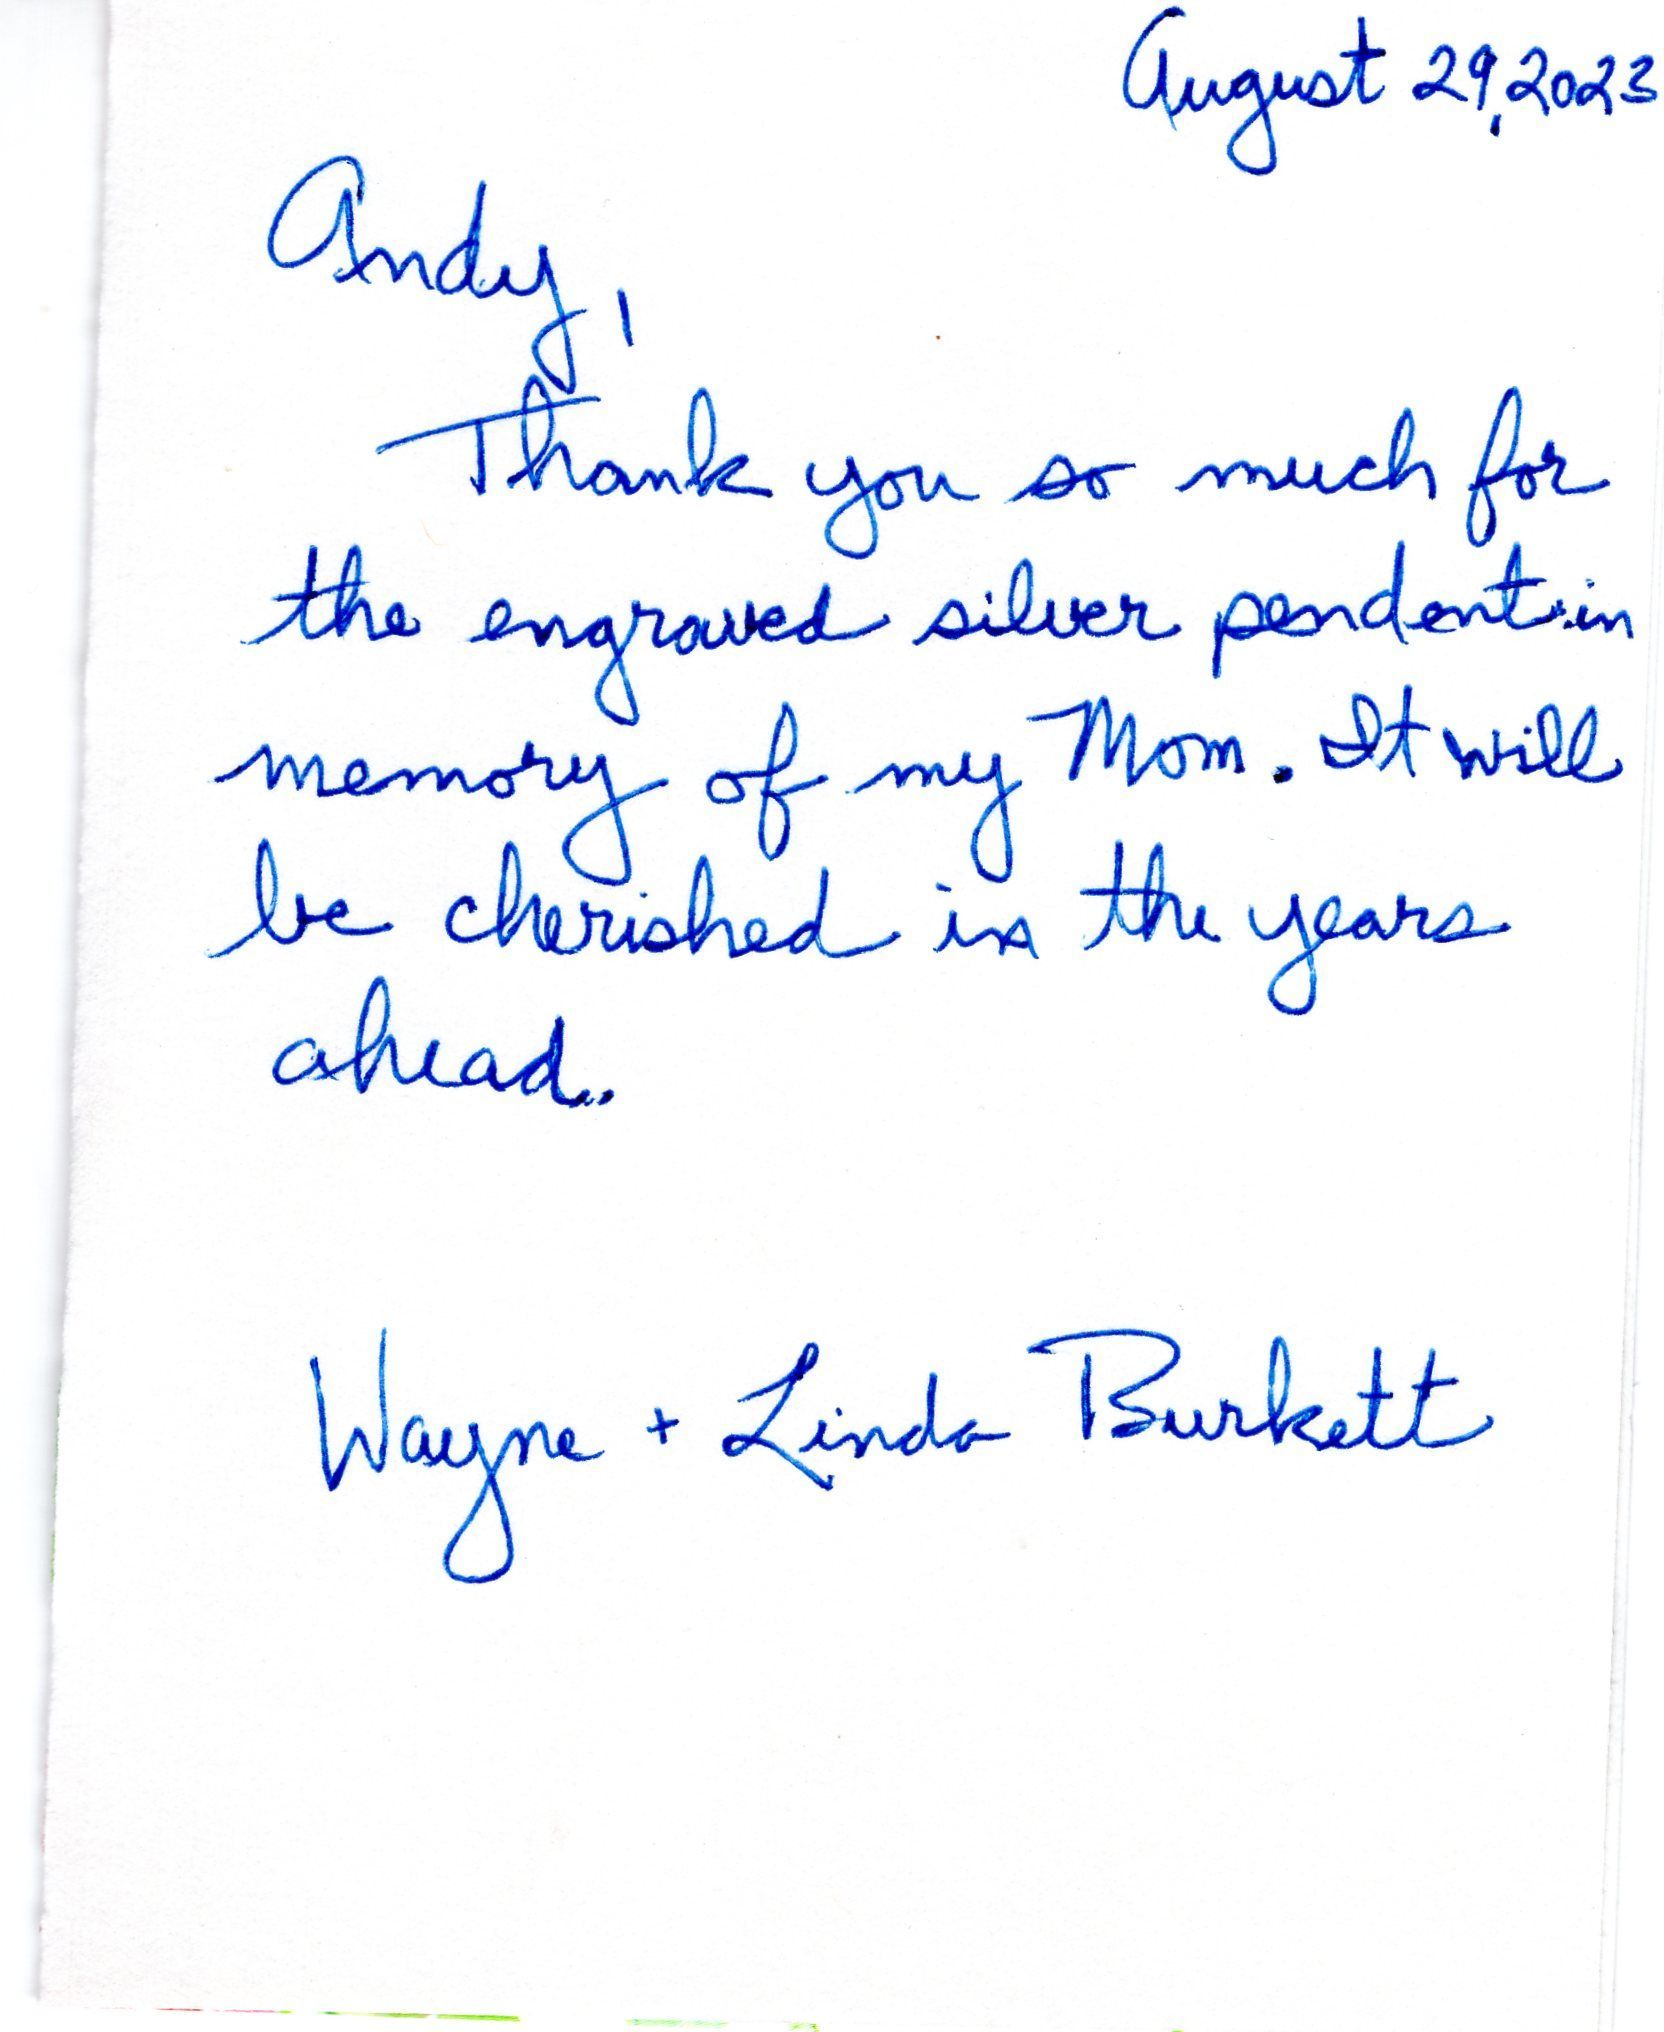 August 29, 2023
Andy,
Thank you so much for
the engraved silver pendent in
memory of my Mom. It will
be cherished in the years
ahead..
Wayne + Linda Burkett